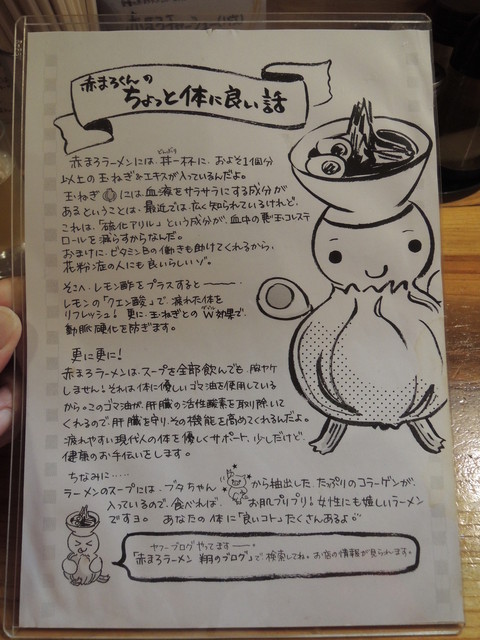 赤まろくんの
ちょっと体に良い話
赤まろラーメンには、丼一杯に、およそ1個分
どんぶり
以上の玉ねぎエキスが入っているんだよ。
玉ねぎには、血液をサラサラにする成分が
あるということは、最近では、広く知られているけれど、
これは、「硫化アリル」という成分が、血中の悪玉コレステ
ロールを減らすからなんだ。
おまけに、ビタミンBの働きも助けてくれるから、
花粉症の人にも良いらしいゾ。
そこへ、レモン酢をプラスすると―――.
レモンの「クエン酸」で、疲れた体を
リフレッシュ! 更に、玉ねぎとのW効果で、
動脈硬化を防ぎます。
更に更に!
赤まろラーメンは、スープを全部飲んでも、胸ヤケ
しません!それは体に優しいゴマ油を使用している
から。このゴマ油が、肝臓の活性酸素を取り除いて
くれるので、肝臓を守り、その機能を高めてくれるんだよ。
疲れやすい現代人の体を優しくサポート、少しだけど、
健康のお手伝いをします。
ちなみに……
ラーメンのスープには、ブタちゃんから抽出したたっぷりのコラーゲンが、
入っているので、食べれば、お肌プリプリ!女性にも嬉しいラーメン
ですヨ。 あなたの体に「良いコト」たくさんあるよ
ヤフーブログやってます――.
「赤まろラーメン 翔のブログ」で検索してね。お店の情報が見られます。